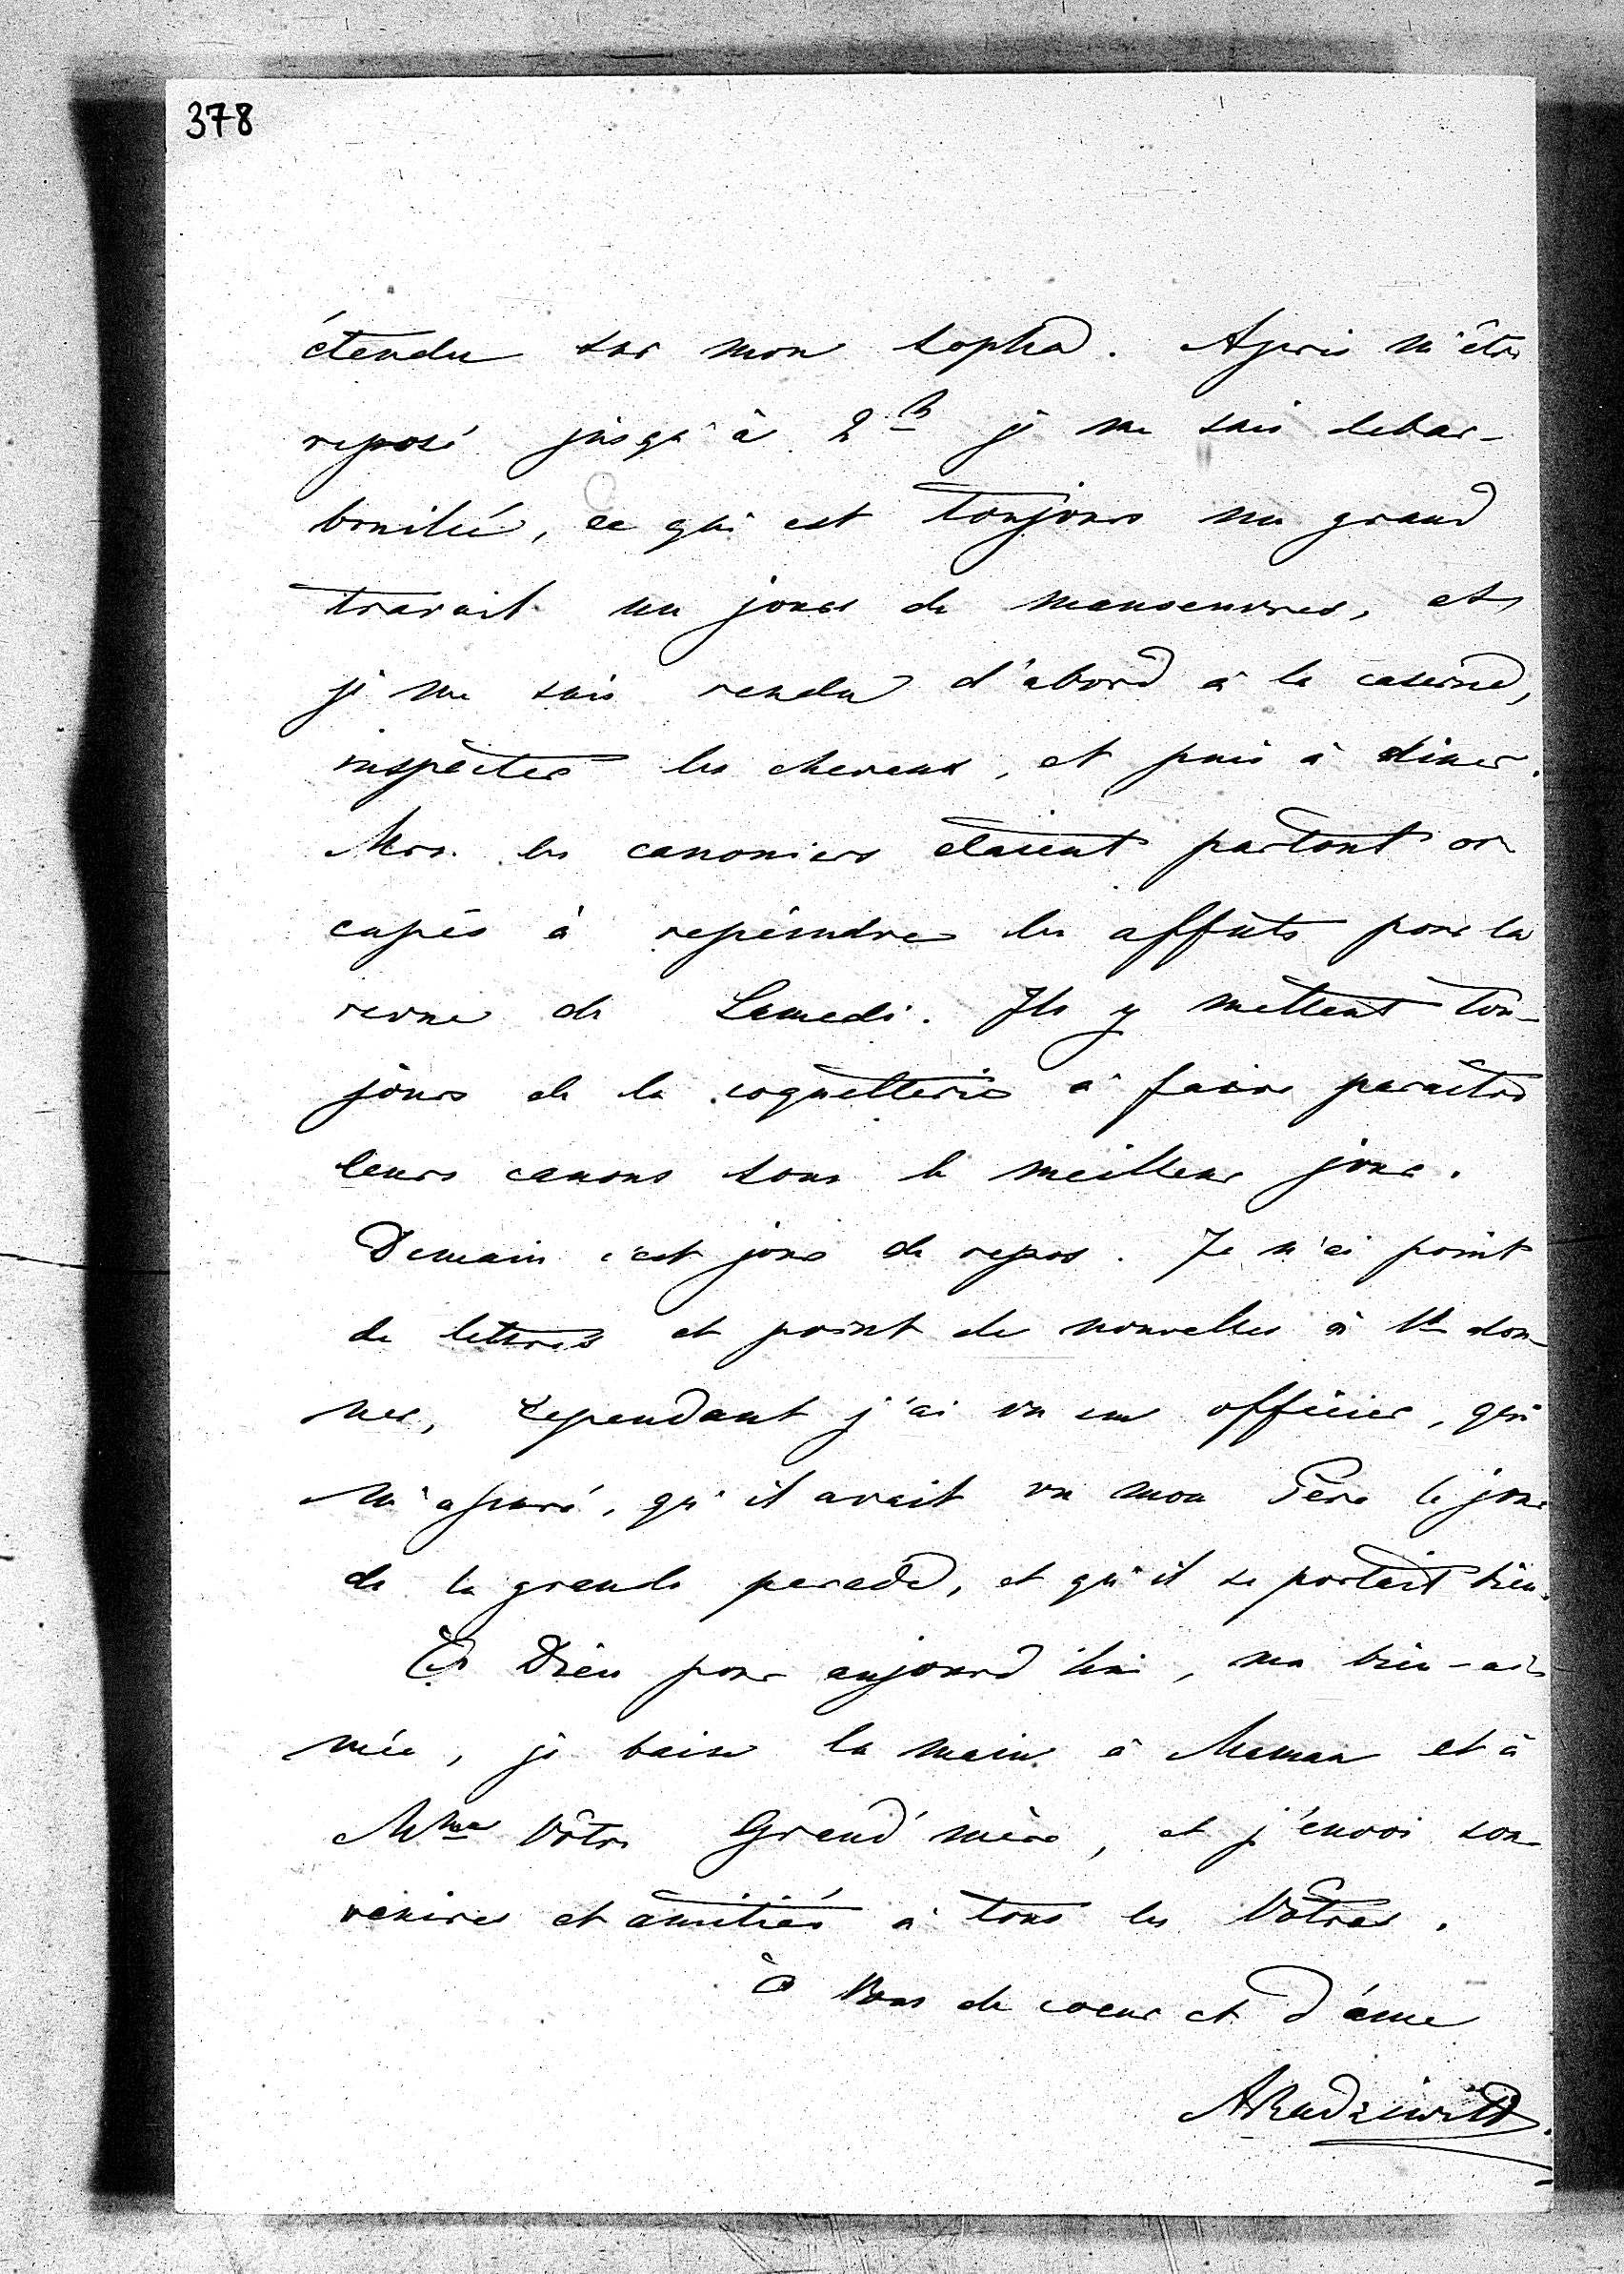 378
étendu sur mon sopha. Apris m'être
reposé jusqu'à 2h je me suis debar-
bouillé, ce qui est toujours un grand
travail un jour de manoeuvres, et
je me suis rendu d'abord à la caserne,
inspecter les chevaux, et puis à diner.
Mrs. les canoniers étaient partout oc
cupés à repeindre les affuts pour la
revue de Samedi. Ils y mettent tou-
jours de la coquetterie à faire paraître
leurs canons sous le meilleur jour.
Demain c'est jour de repos. Je n'ai point
de lettres et point de nouvelles à Vs don-
ner, cependant j'ai vu un officier, qui
m'assuré, qu'il avait vu mon Père le jour
de la grande parade, et qu'il se portait bien.
À Dieu pour aujourd'hui, ma bien-ai-
mée, je baise la main à Maman et à
Mme Vôtre Grand'mère, et j'envoi sou
venires et amitiés à tous les Vôtres.
à Vous de coeur et d'âme
ARadziwill.